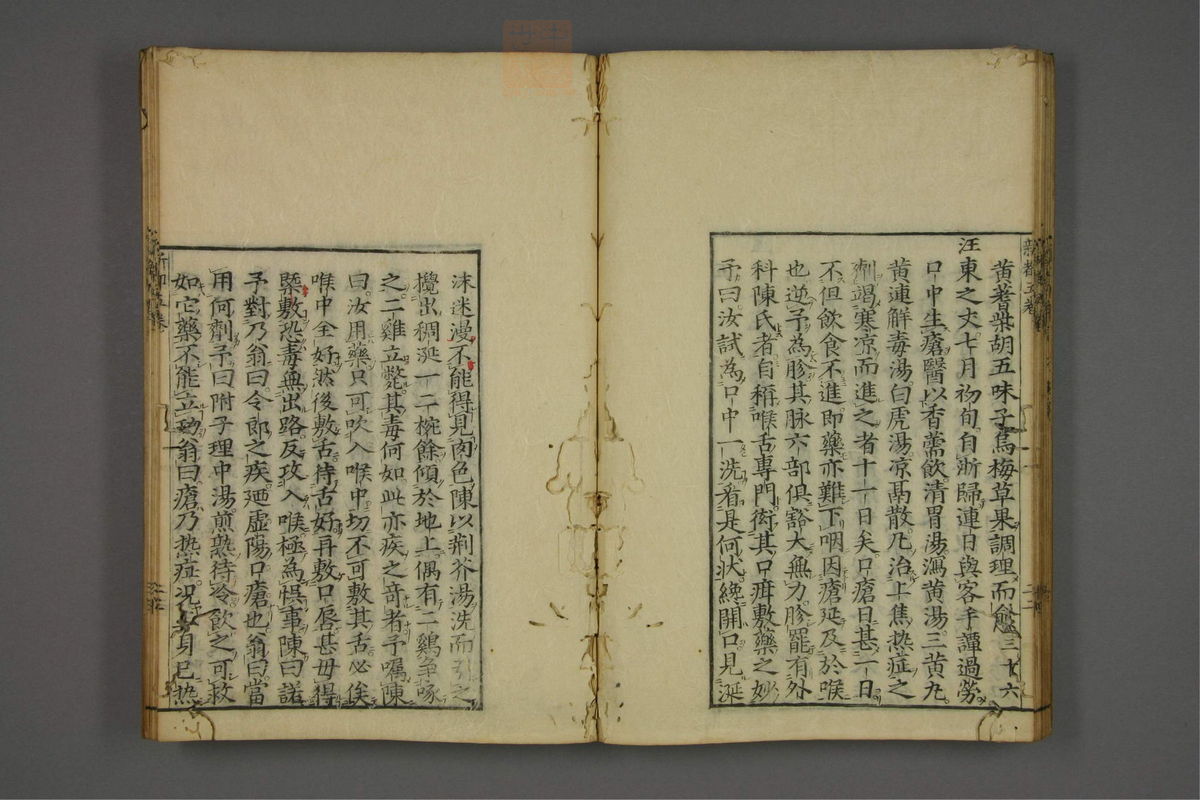 黄蓍柴胡五味子烏梅草果調理而愈三十六
汪東之丈七月初旬自浙歸連日與客手譚過勞
口中生瘡醫以香薷飲清胃湯瀉黄湯三黄丸
黄連解毒湯白虎湯凉鬲散凢治上焦热症之
劑竭寒凉而進之者十一日矣口瘡日甚一日
不但飲食不進即藥亦難下咽因瘡延及於喉
也逆予為胗其脉六部俱豁大無力胗罷有外
科陳氏者自稱喉舌專門衒其口疳敷藥之妙
予曰汝試為口中一洗看是何狀纔開口見涎
沫迷漫不能得見肉色陳以荆芥湯洗而引之
攪出稠涎一二椀餘傾於地上偶有二鷄争啄
之二雞立斃其毒何如此亦疾之竒者予嘱陳
曰汝用藥只可吹入喉中切不可敷其舌必俟
喉中全好然後敷舌待舌好再敷口唇甚毋得
槩敷恐毒無出路反攻入喉極為悞事陳曰諾
予對乃翁曰令郎之疾廼虛陽口瘡也翁曰當
用何劑予曰附子理中湯煎熟待冷飲之可救
如它藥不能立功翁曰瘡乃热症况身已热
新都五卷